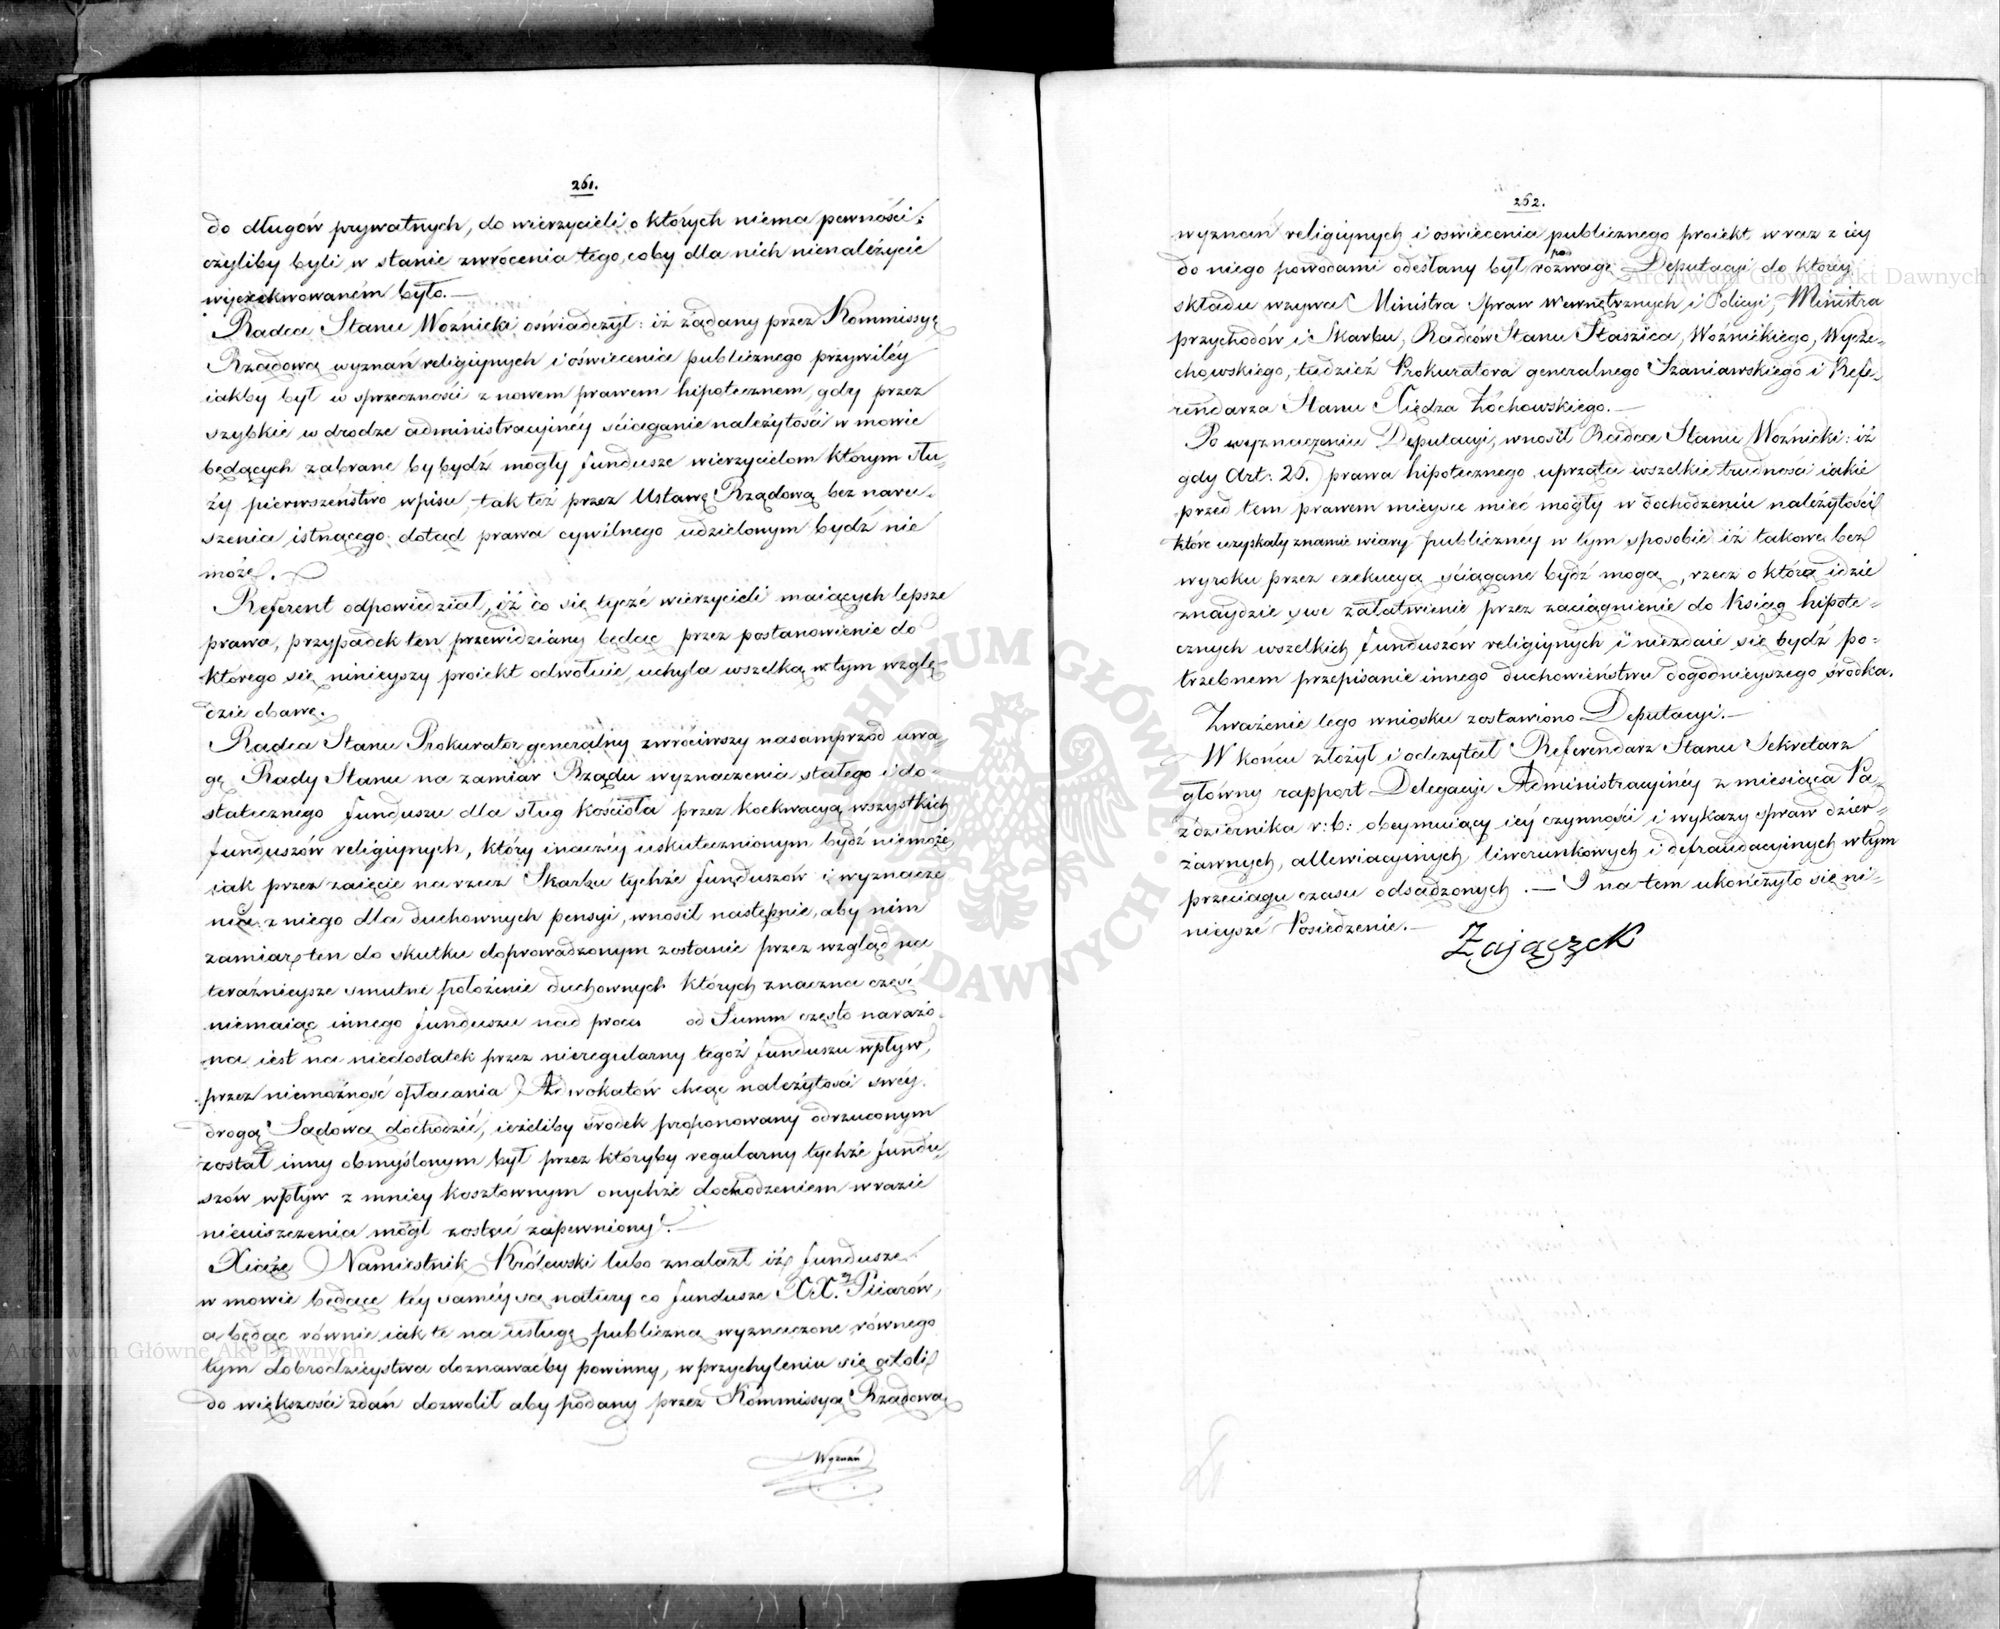 261.
do długów prywatnych, do wierzycieli o których niema pewności:
czyliby byli w stanie zwrócenia tego, coby dla nich nienależycie
wyexekwowaném było. —
Radca Stanu Woźnicki oświadczył: iż żądany przez Kommissyę
Rządową wyznań religiynych i oświecenia publicznego przywiléy
iakby był w sprzeczności z nowem prawem hipotecznem, gdy przez
szybkie w drodze administracyinéy ściąganie należytości w mowie
będących zabrane by bydź mogły fundusze wierzycielom którym słu-
ży pierwszeństwo wpisu, tak też przez Ustawę Rządową bez naru-
szenia istnącego dotąd prawa cywilnego udzielonym bydź nie
może. —
Referent odpowiedział, iż co się tycze wierzycieli maiących lepsze
prawa, przypadek ten przewidziany będąc przez postanowienie do
którego się ninieyszy proiekt odwołuie uchyla wszelką w tym wzglę-
dzie obawę.
Radca Stanu Prokurator generalny zwróciwszy nasamprzód uwa-
gę Rady Stanu na zamiar Rządu wyznaczenia stałego i do-
statecznego funduszu dla sług kościoła przez koekwacyą wszystkich
funduszów religiynych, który inaczéy uskutecznionym bydź niemoże,
iak przez zaięcie na rzecz Skarbu tychże funduszów i wyznacze
nia z niego dla duchownych pensyi, wnosił następnie, aby nim
zamiar ten do skutku doprowadzonym zostanie przez wzgląd na
teraźnieysze smutne położenie duchownych których znaczna część
niemaiąc innego funduszu nad procu od Summ często narażo-
na iest na niedostatek przez nieregularny tegoż funduszu wpływ,
przez niemożność opłacania Adwokatów chcąc należytości swéy
drogą Sądową dochodzić, ieżeliby środek proponowany odrzuconym
został inny obmyślonym był przez któryby regularny tychże fundu-
szów wpływ z mniey kosztownym onychże dochodzeniem w razie
nieuiszczenia mógł zostać zapewniony. —
Xiąże Namiestnik Królewski lubo znalazł iż fundusze
w mowie będące téy saméy są natury co fundusze XX. Piiarów,
a będąc równie iak te na usługę publiczną wyznaczone równego
tym dobrodzieystwa doznawaćby powinny, w przychyleniu się atoli
do większości zdań dozwolił aby podany przez Kommissyą Rządową
Wyznań
262.
wyznań religiynych i oświecenia publicznego proiekt wraz z iey
do niego powodami odesłany był pod rozwagę Deputacyi do któréy
składu wzywa Ministra Spraw Wewnętrznych i Policyi, Ministra
przychodów i Skarbu, Radców Stanu Staszica, Woźnickiego, Wycze-
chowskiego, tudzież Prokuratora generalnego Szaniawskiego i Refe-
rendarza Stanu Xiędza Żóchowskiego. —
Po wyznaczeniu Deputacyi, wnosił Radca Stanu Woźnicki: iż
gdy Art: 20. prawa hipotecznego uprząta wszelkie trudności iakie
przed tem prawem mieysce mieć mogły w dochodzeniu należytości
które uzyskały znamie wiary publicznéy w tym sposobie iż takowe bez
wyroku przez exekucyą ściągane bydź mogą, rzecz o którą idzie
znaydzie swe załatwienie przez zaciągnienie do Ksiąg hipote-
cznych wszelkich funduszów religiynych i niezdaie się bydź po-
trzebnem przepisanie innego duchowieństwu dogodnieyszego środka.
Zważenie tego wniosku zostawiono Deputacyi. —
W końcu złożył i odczytał Referendarz Stanu Sekretarz
główny rapport Delegacyi Administracyinéy z miesiąca Pa-
ździernika r: b: obeymuiący iéy czynności i wykazy spraw dzier-
żawnych, allewiacyinych, liwerunkowych i defraudacyinych w tym
przeciągu czasu odsądzonych. — I na tem ukończyło się ni-
nieysze Posiedzenie. —
Zajączek
Archiwum Główne Akt Dawnych
Archiwum Główne Akt Dawnych
ARCHIWUM GŁÓWNE AKT DAWNYCH